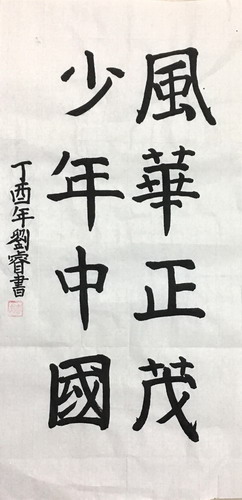 風華正茂
少年中國
丁酉年劉睿書